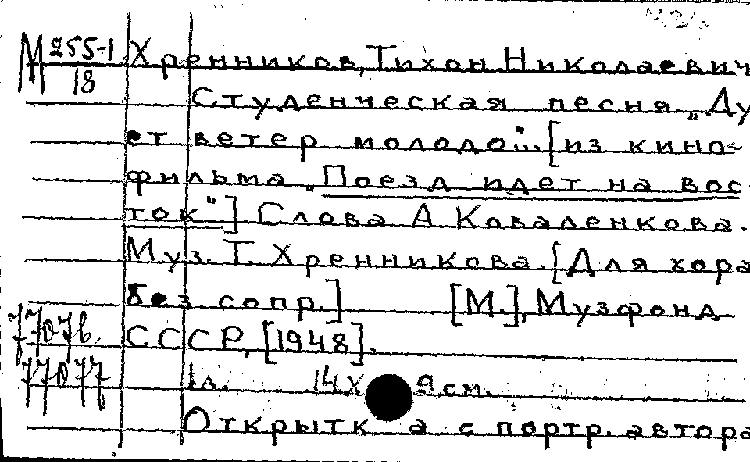 М 255-1 Хренников, Тихон Николаевич
18
Студенческая песня „Ду
ет ветер молодо"... [из кино-
фильма „Поезд идет на вос
ток"] Слова А Коваленкова.
Муз. Т. Хренникова. [Для хора
без сопр.] [М.], Музфонд
СССР, [1948].
77076.
77077 1л. 14х 9 см.
Открытк а с портр. автора